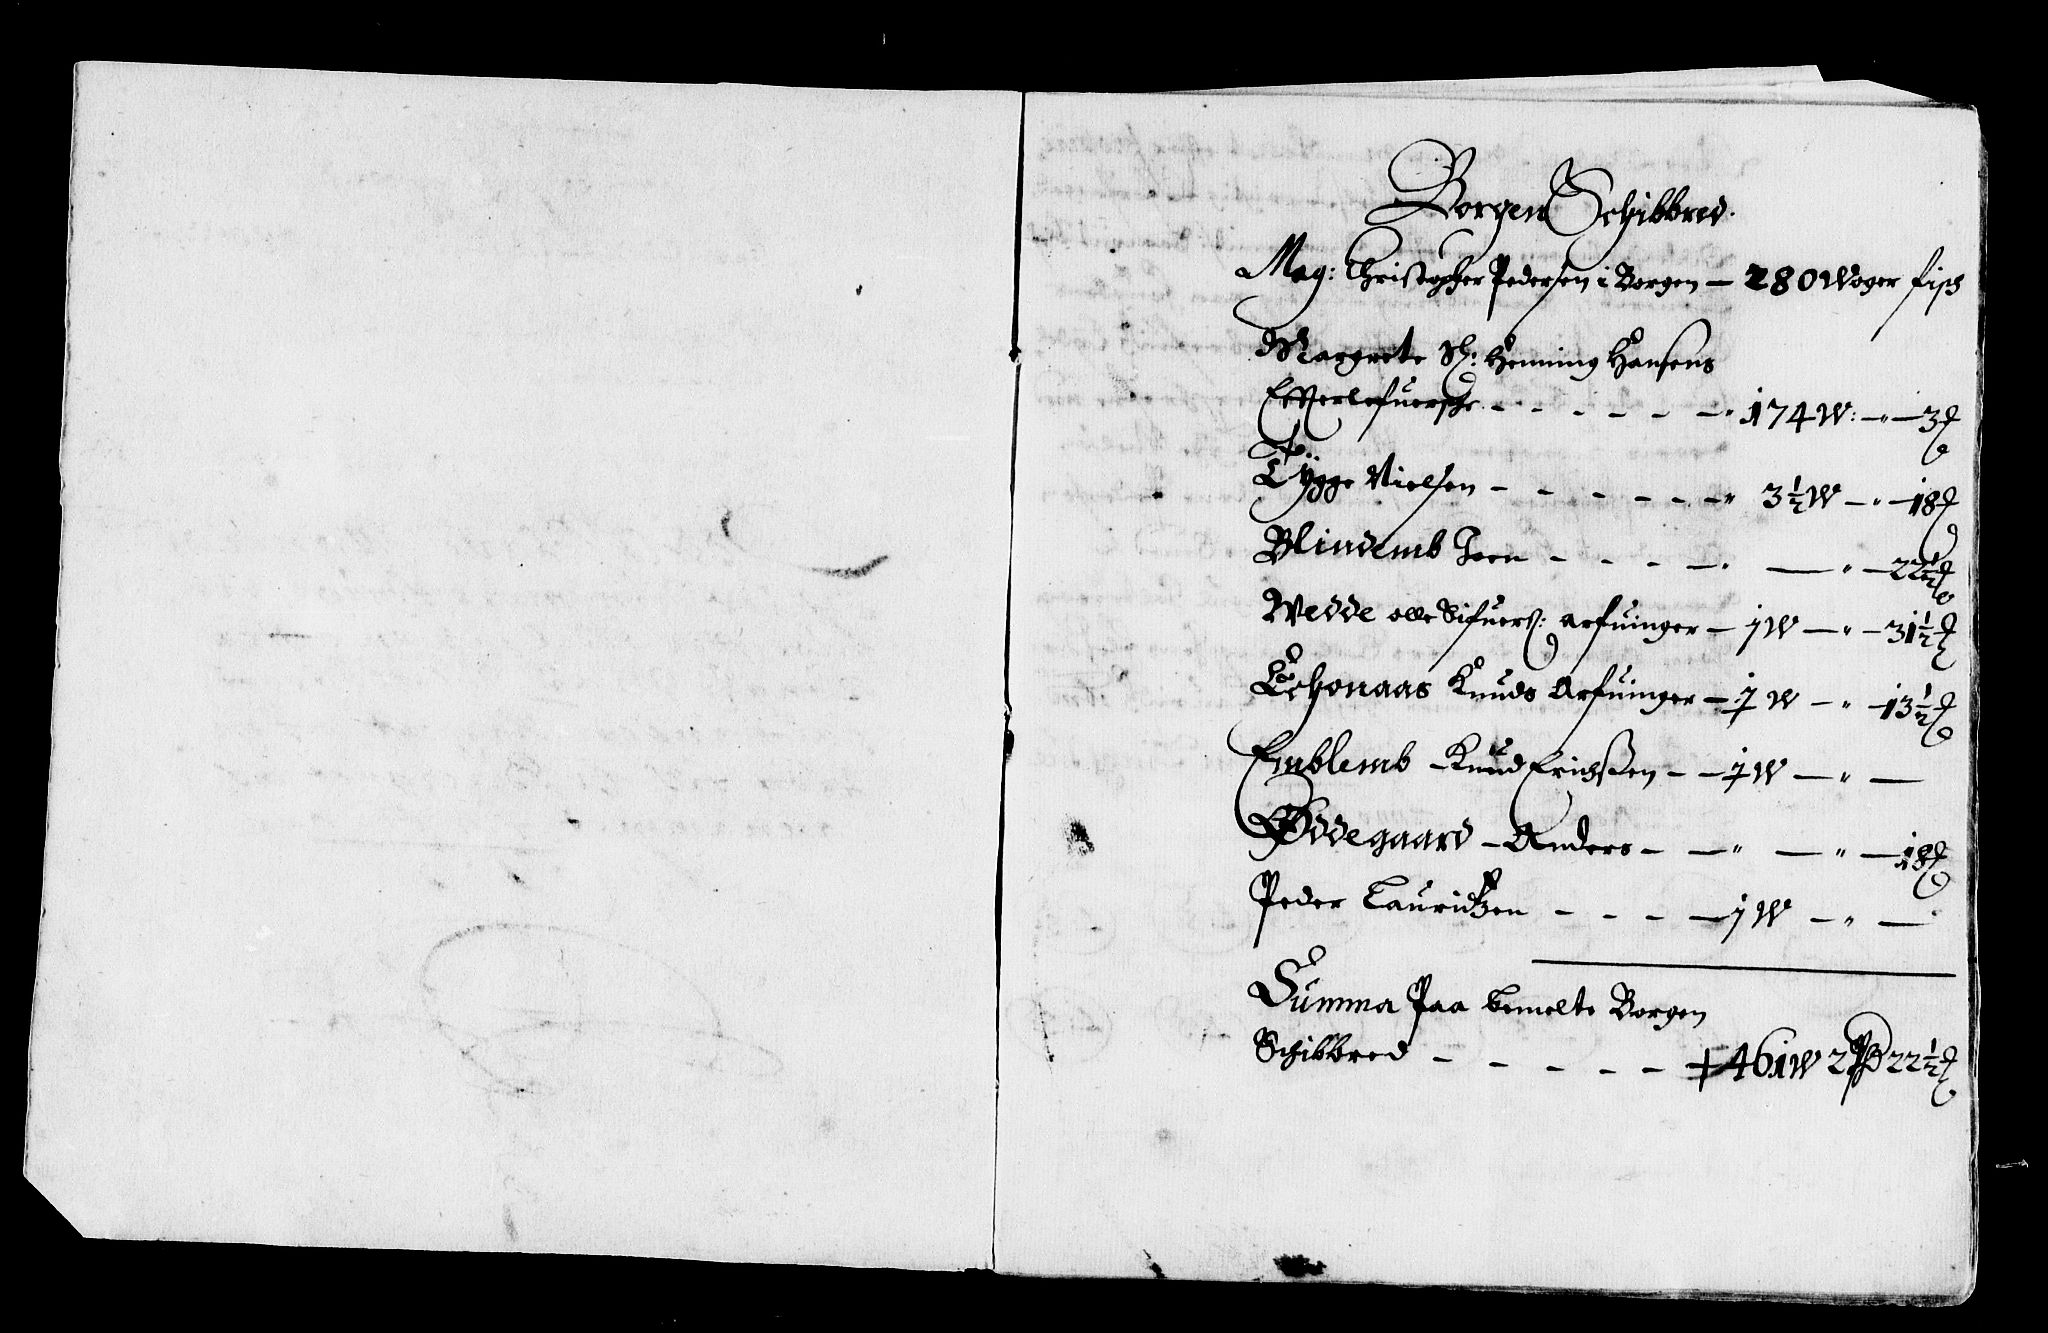 Borgen Schibbred.
Mag: Christopher Pedersen i Borgen — 280 Woger fisch
Margrete Sl: Henning Hansens
Efterlefuersche - - - - - - " 174 W: — " — 3 ℔
Tÿgge Nielsen - - - - - - " 3½ W — " — 18 ℔
Blindemb Joen - - - - " — " — 22½ ℔
Wedde olle Sifuers: arfuinger — j W — " — 31½ ℔
Echonaas Knuds Arfuinger — j W — " — 13½ ℔
Emblemb - Knud Erichßen - - j W — " —
Øddegaard - Anders - — " — " — 18 ℔
Peder Lauridtzen - - - - j W — " —
Summa Paa bemelte Borgen
Schibbred - - - - - - 461 W 2 P 22½ ℔